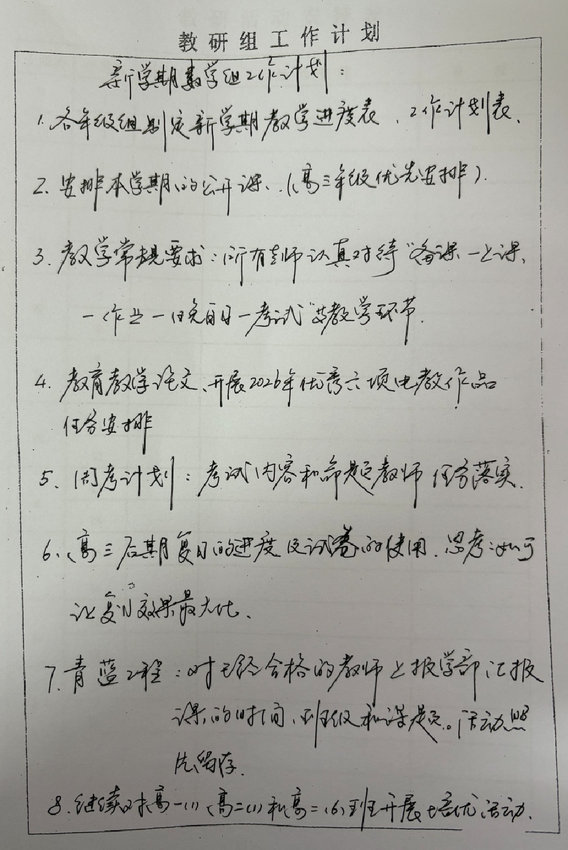 教研组工作计划
新学期数学组工作计划：
1.各年级组制定新学期教学进度表、工作计划表、
2.安排本学期的公开课、（高三年级优先安排）.
3.教学常规要求：所有老师认真对待“备课一上课、
一作业一晚自习一考试”等教学环节.
4.教育教学论文、开展2026年优秀六项电教作品
任务安排
5、周考计划：考试内容和命题教师任务落实.
6、高三后期复习的进度及试卷的使用.思考：如何
让复习效果最大化.
7.青蓝工程：对已经合格的教师上报学部汇报
课的时间、班级和课题。活动照
片留存.
8.继续对高一(1)、高二(1)和高二(6)班开展培优活动.